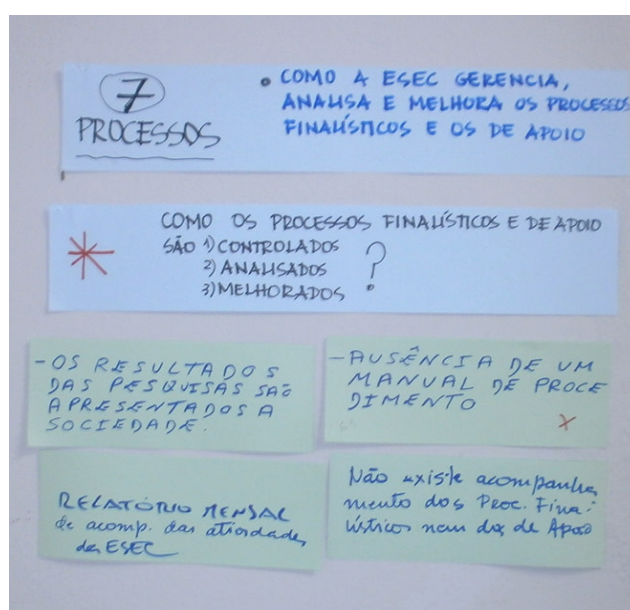 7
PROCESSOS
• COMO A ESEC GERENCIA,
ANALISA E MELHORA OS PROCESSOS
FINALÍSTICOS E OS DE APOIO
COMO OS PROCESSOS FINALÍSTICOS E DE APOIO
SÃO 1) CONTROLADOS
2) ANALISADOS ?
3) MELHORADOS
- OS RESULTADOS
DAS PESQUISAS SÃO
APRESENTADOS A
SOCIEDADE.
- AUSÊNCIA DE UM
MANUAL DE PROCE
DIMENTO
X
RELATÓRIO MENSAL
de acomp. das atividades
da ESEC
Não existe acompanha
mento dos Proc. Fina-
lísticos nem dos de Apoio